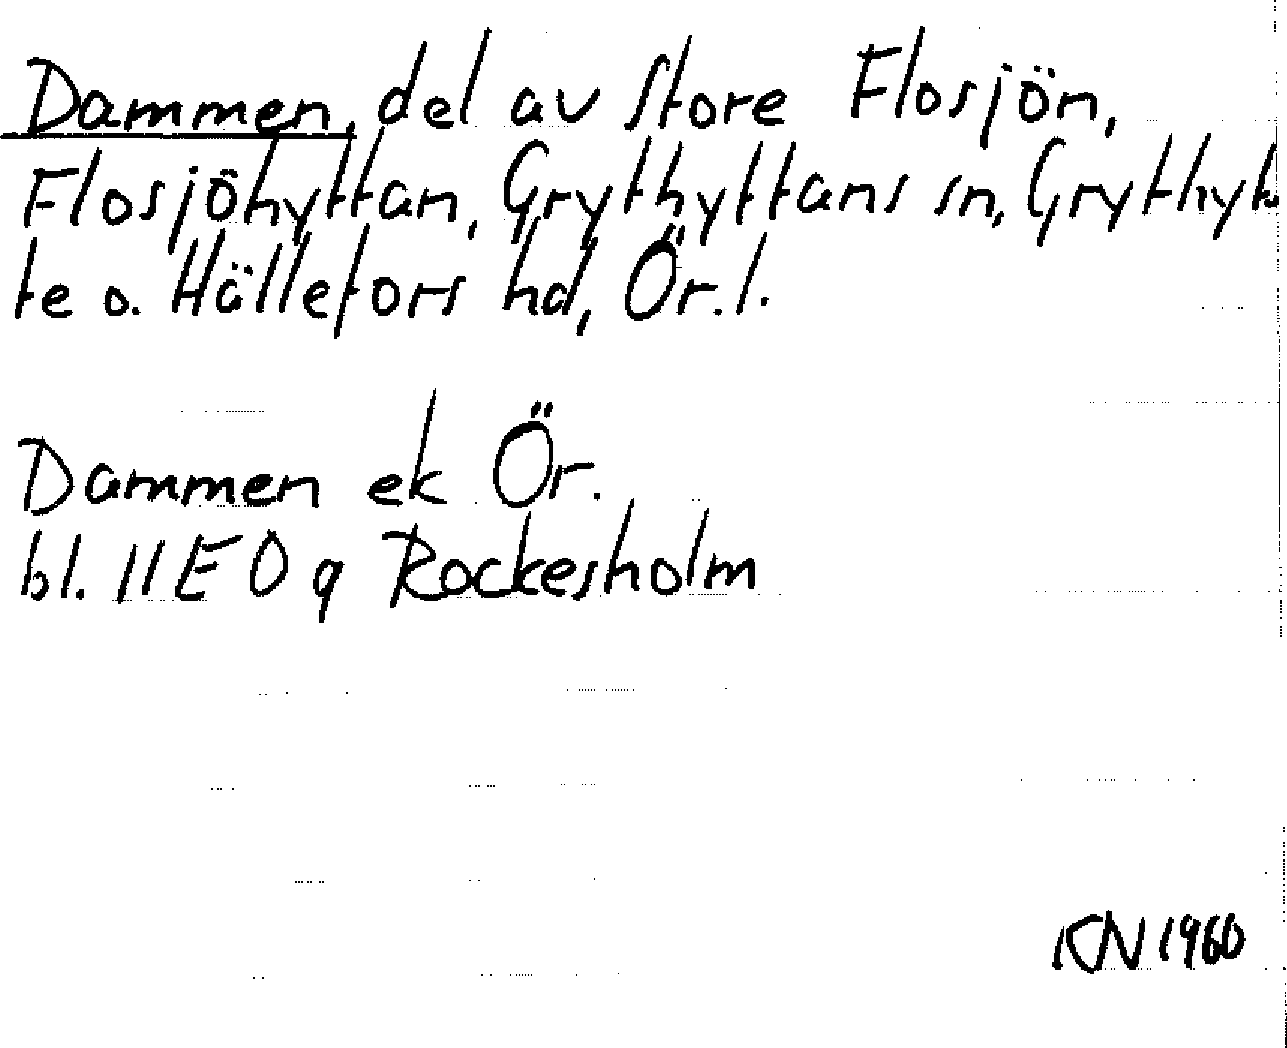 Dammen, del av Store Flosjön,
Flosjöhyttan, Grythyttans sn, Grythyt-
te o. Hällefors hd, Ör. l.
Dammen ek Ör.
bl. 11E0q Rockesholm
KN 1960